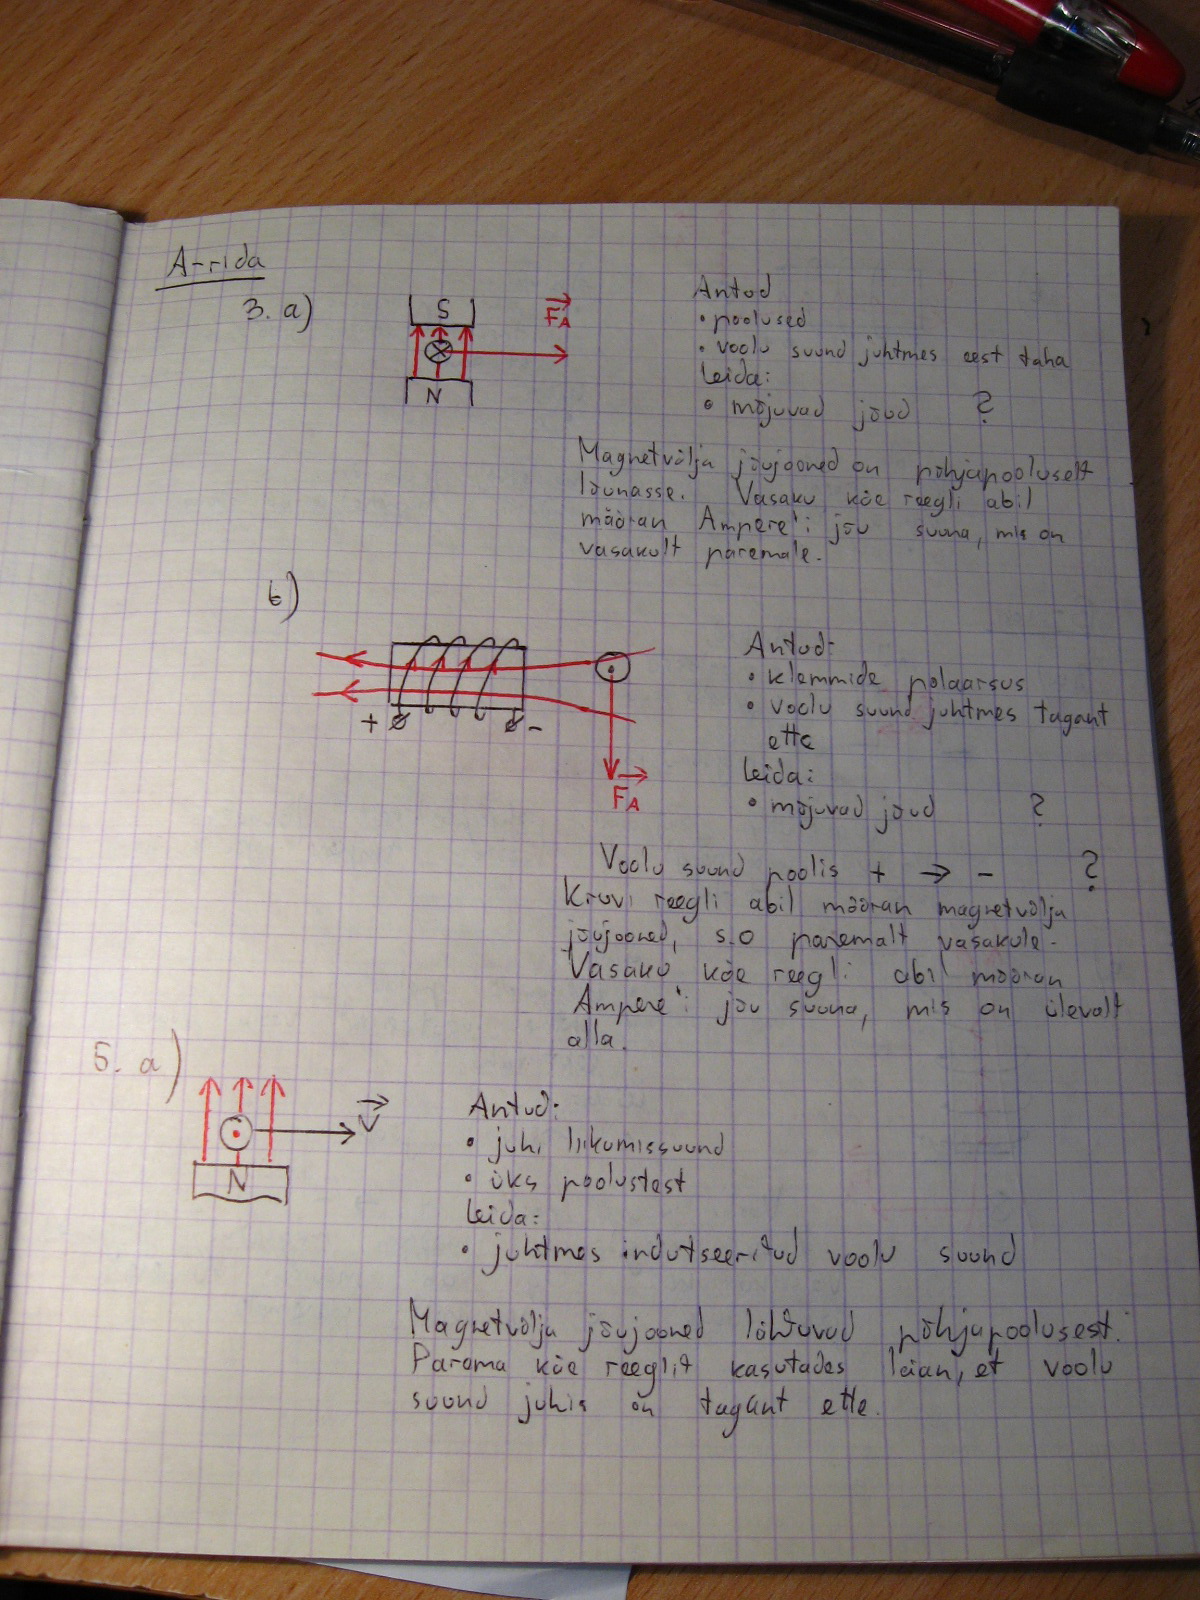 A-rida
3. a)
S
N
FA
Antud
• poolused
• voolu suund juhtmes eest taha
Leida:
• mõjuvad jõud ?
Magnetvälja jõujooned on põhjapooluselt
lõunasse. Vasaku käe reegli abil
määran Ampere'i jõu suuna, mis on
vasakult paremale.
b)
+ -
FA
Antud:
• klemmide polaarsus
• voolu suund juhtmes tagant
ette
Leida:
• mõjuvad jõud ?
Voolu suund poolis + → - ?
Kruvi reegli abil määran magnetvälja
jõujooned, s.o paremalt vasakule.
Vasaku käe reegli abil määran
Ampere'i jõu suuna, mis on ülevalt
alla.
5. a)
V
N
Antud:
• juhi liikumissuund
• üks poolustest
Leida:
• juhtmes indutseeritud voolu suund
Magnetvälja jõujooned lähtuvad põhjapoolusest.
Parema käe reeglit kasutades leian, et voolu
suund juhis on tagant ette.